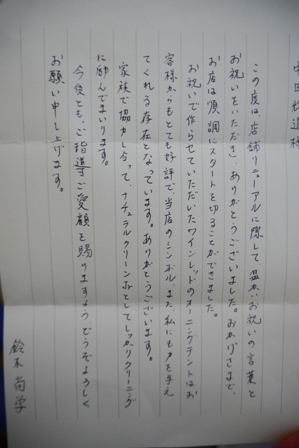 この度は店舗リニューアルに際して温かいお祝いの言葉と
お祝いをいただき、ありがとうございました。おかげさまで、
お店は順調にスタートを切ることができました。
お祝いで作らせていただいたワインレッドのオーニングテントはお
客様からもとても好評で当店のシンボル、また、私にも力を与え
てくれる存在となっています。ありがとうございます。
家族で協力し合って、ナチュラルクリーンとしてしっかりクリーニング
に励んでまいります。
今後とも、ご指導、ご愛顧を賜りますようどうぞよろしく
お願い申し上げます。
鈴木